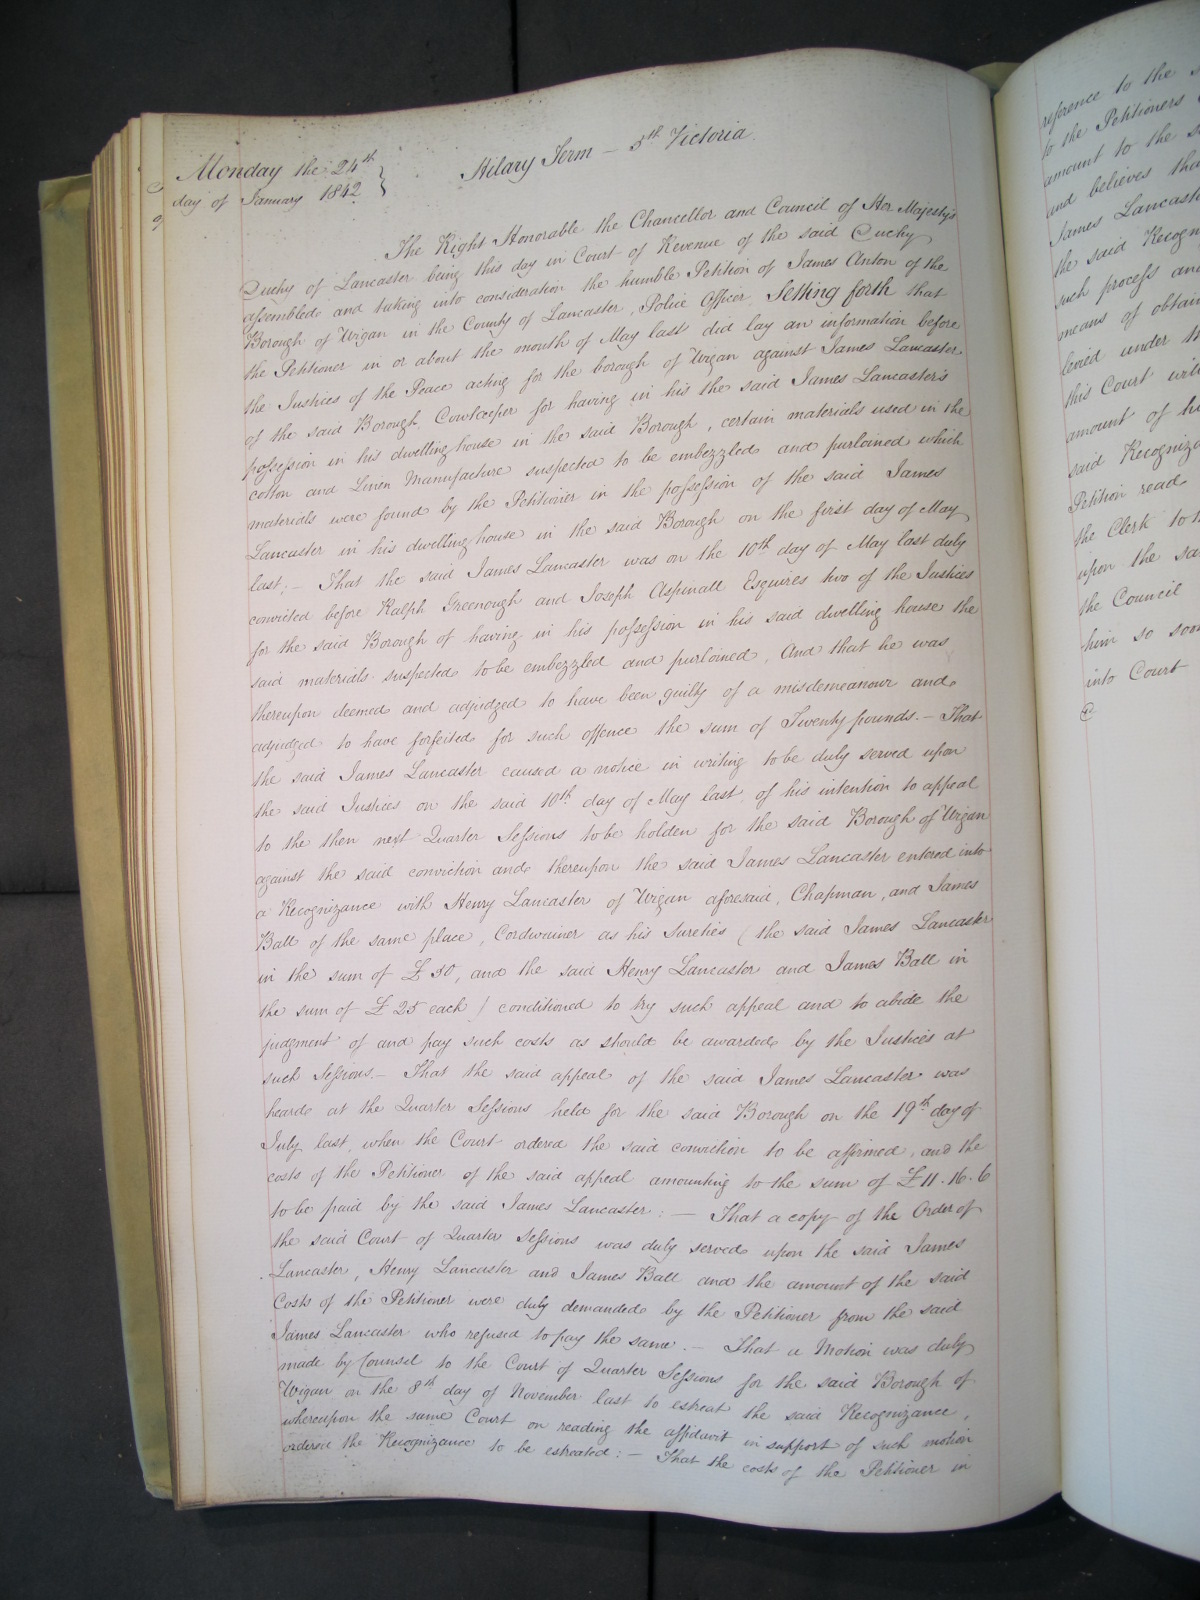 Monday the 24th
day of January 1842
Hilary Term – 5th Victoria.
The Right Honorable the Chancellor and Council of Her Majesty's
Duchy of Lancaster being this day in Court of Revenue of the said Duchy
assembled and taking into consideration the humble Petition of James Anton of the
Borough of Wigan in the County of Lancaster, Police Officer, Setting forth that
the Petitioner in or about the month of May last did lay an information before
the Justices of the Peace acting for the borough of Wigan against James Lancaster
of the said Borough, Cowkeeper for having in his the said James Lancaster's
possession in his dwelling house in the said Borough, certain materials used in the
cotton and Linen Manufacture suspected to be embezzled and purloined which
materials were found by the Petitioner in the possession of the said James
Lancaster in his dwelling house in the said Borough on the first day of May
last; – That the said James Lancaster was on the 10th day of May last duly
convicted before Ralph Greenough and Joseph Aspinall Esquires two of the Justices
for the said Borough of having in his possession in his said dwelling house the
said materials suspected to be embezzled and purloined, And that he was
thereupon deemed and adjudged to have been guilty of a misdemeanour and
adjudged to have forfeited for such offence the sum of Twenty pounds. – That
the said James Lancaster caused a notice in writing to be duly served upon
the said Justices on the said 10th day of May last of his intention to appeal
to the then next Quarter Sessions to be holden for the said Borough of Wigan
against the said conviction and thereupon the said James Lancaster entered into
a Recognizance with Henry Lancaster of Wigan aforesaid, Chapman, and James
Ball of the same place, Cordwainer as his Sureties (the said James Lancaster
in the sum of £50, and the said Henry Lancaster and James Ball in
the sum of £25 each) conditioned to try such appeal and to abide the
judgment of and pay such costs as should be awarded by the Justices at
such Sessions. – That the said appeal of the said James Lancaster was
heard at the Quarter Sessions held for the said Borough on the 19th day of
July last, when the Court ordered the said conviction to be affirmed, and the
costs of the Petitioner of the said appeal amounting to the sum of £11.16.6
to be paid by the said James Lancaster: – That a copy of the Order of
the said Court of Quarter Sessions was duly served upon the said James
Lancaster, Henry Lancaster and James Ball and the amount of the said
Costs of the Petitioner were duly demanded by the Petitioner from the said
James Lancaster who refused to pay the same. – That a Motion was duly
made by Counsel to the Court of Quarter Sessions for the said Borough of
Wigan on the 8th day of November last to estreat the said Recognizance,
whereupon the same Court on reading the affidavit in support of such motion
ordered the Recognizance to be estreated: – That the costs of the Petitioner in
reference to the
to the Petitioners
amount to the
and believes tha
James Lancast
the said Recogn
such process and
means of obtain
levied under th
this Court wil
amount of hi
said Recogniza
Petition read
the Clerk to t
upon the sa
the Council
him so soon
into Court